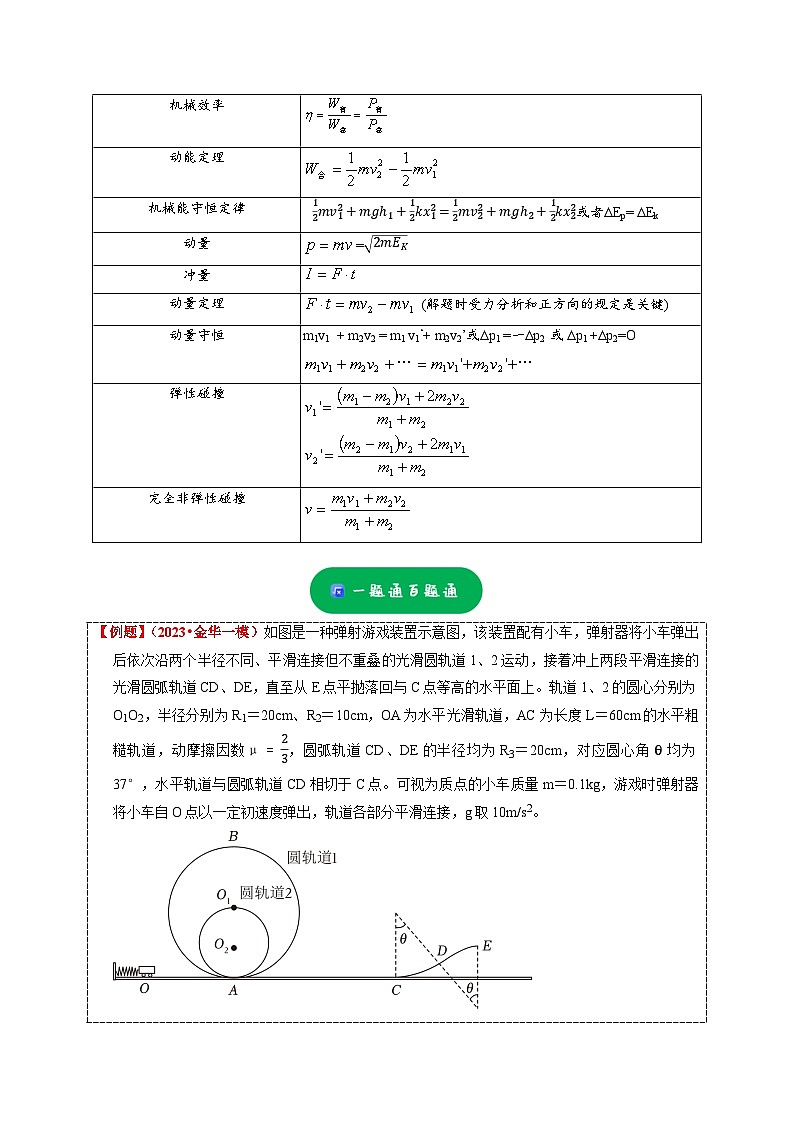 机械效率 η = W有/W总 = P有/P总
动能定理 W合 = 1/2 mv₂² − 1/2 mv₁²
机械能守恒定律 1/2 mv₁² + mgh₁ + 1/2 kx₁² = 1/2 mv₂² + mgh₂ + 1/2 kx₂² 或者ΔEp= ΔEk
动量 p = mv =√(2mE_K)
冲量 I = F · t
动量定理 F · t = mv₂ − mv₁ (解题时受力分析和正方向的规定是关键)
动量守恒 m₁v₁ + m₂v₂ = m₁ v₁'+ m₂v₂'或Δp₁ = −Δp₂ 或 Δp₁ +Δp₂=O
m₁v₁ + m₂v₂ + ⋯ = m₁v₁'+m₂v₂'+⋯
弹性碰撞 v₁'= ((m₁ − m₂)v₁ + 2m₂v₂)/(m₁ + m₂)
v₂'= ((m₂ − m₁)v₂ + 2m₁v₁)/(m₁ + m₂)
完全非弹性碰撞 v = (m₁v₁ + m₂v₂)/(m₁ + m₂)
一题通百题通
【例题】(2023•金华一模)如图是一种弹射游戏装置示意图，该装置配有小车，弹射器将小车弹出
后依次沿两个半径不同、平滑连接但不重叠的光滑圆轨道 1、2 运动，接着冲上两段平滑连接的
光滑圆弧轨道 CD、DE，直至从 E 点平抛落回与 C 点等高的水平面上。轨道 1、2 的圆心分别为
O₁O₂，半径分别为 R₁＝20cm、R₂＝10cm，OA 为水平光滑轨道，AC 为长度 L＝60cm 的水平粗
糙轨道，动摩擦因数 μ = 2/3，圆弧轨道 CD、DE 的半径均为 R₃＝20cm，对应圆心角 θ 均为
37°，水平轨道与圆弧轨道 CD 相切于 C 点。可视为质点的小车质量 m＝0.1kg，游戏时弹射器
将小车自 O 点以一定初速度弹出，轨道各部分平滑连接，g 取 10m/s²。
B
圆轨道1
O₁ 圆轨道2
O₂
θ
D
E
O
A
C
θ